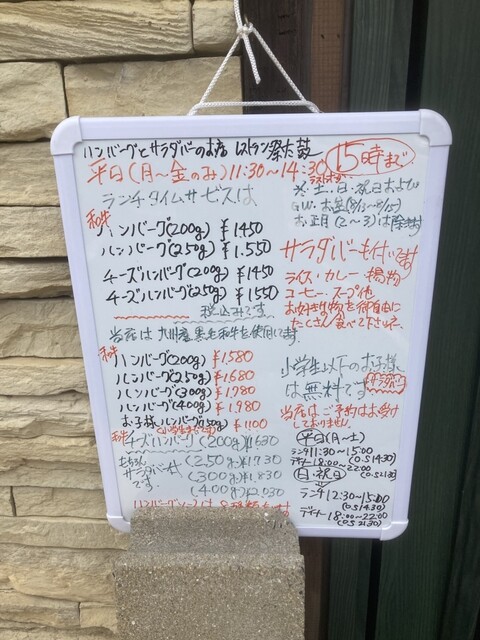 ハンバーグとサラダバーのお店 レストラン祭太鼓
平日(月〜金のみ)11:30〜14:30 15時まで
ラストオーダー
ランチタイムサービスは
※土・日・祝日および
G.W. お盆(8/13〜8/15)
お正月(2〜3)は除きます
和牛
ハンバーグ(200g) ¥1450
ハンバーグ(250g) ¥1.550
チーズハンバーグ(200g) ¥1450
チーズハンバーグ(250g) ¥1550
税込みです
サラダバーも付いてます
ライス・カレー・揚物
コーヒー・スープ他
お好きな物を御自由に
たくさん食べて下さいネ
当店は九州産黒毛和牛を使用してます
和牛
ハンバーグ(200g) ¥1580
ハンバーグ(250g) ¥1680
ハンバーグ(300g) ¥1.780
ハンバーグ(400g) ¥1.980
お子様ハンバーグ(150g) ¥1100
(小学生までです)
和牛
チーズハンバーグ(200g)¥1630
(250g)¥1.730
(300g)¥1.830
(400g)¥2.030
もちろん
サラダバー付
です
小学生以下のお子様
は無料です サラダバー
当店はご予約はお受け
しておりません
平日(月〜土)
ランチ11:30〜15:00
(O.S 14:30)
ディナー18:00〜22:00
(O.S 21:30)
日・祝日
ランチ12:30〜15:00
(O.S 14:30)
ディナー18:00〜22:00
(O.S 21:30)